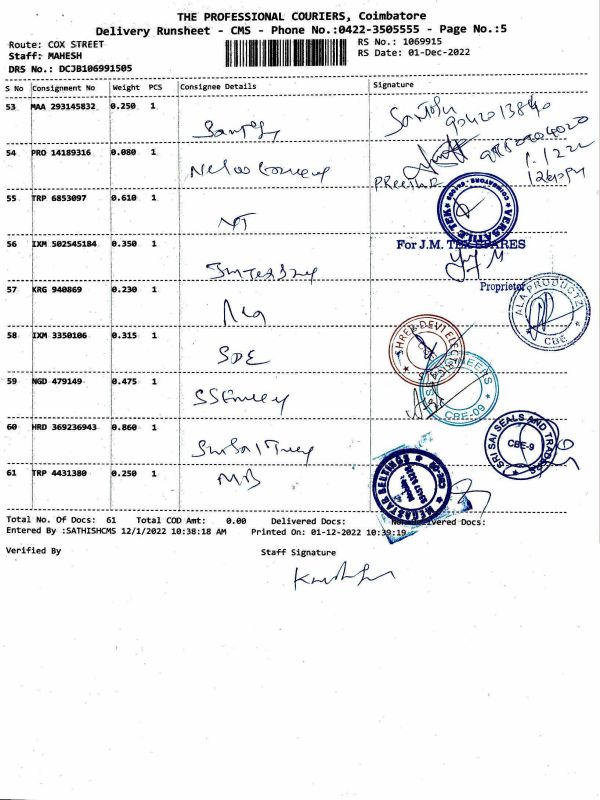 THE PROFESSIONAL COURIERS, Coimbatore
Delivery Runsheet - CMS - Phone No.:0422-3505555 - Page No.:5
Route: COX STREET
RS No.: 1069915
Staff: MAHESH
RS Date: 01-Dec-2022
DRS No.: DCJB106991505
S No Consignment No Weight PCS Consignee Details Signature
53 MAA 293145832 0.250 1
54 PRO 14189316 0.080 1
PReethi R
55 TRP 6853097 0.610 1
NT
VERSATILE TEK
COIMBATORE
56 IXM 502545184 0.350 1
For J.M. TEX SPARES
Proprietor
57 KRG 940869 0.230 1
ALA PRODUCTZ
CBE
58 IXM 3350106 0.315 1
SDE
SHREE DEVI ELECTRICALS
59 NGD 479149 0.475 1
CBE-09
60 HRD 369236943 0.860 1
SRI SAI SEALS AND TRADERS
CBE-9
61 TRP 4431380 0.250 1
MB
MEGASTAR BELTINGS
Total No. Of Docs: 61 Total COD Amt: 0.00 Delivered Docs: Non-Delivered Docs:
Entered By :SATHISHCMS 12/1/2022 10:38:18 AM Printed On: 01-12-2022 10:39:19
Verified By Staff Signature